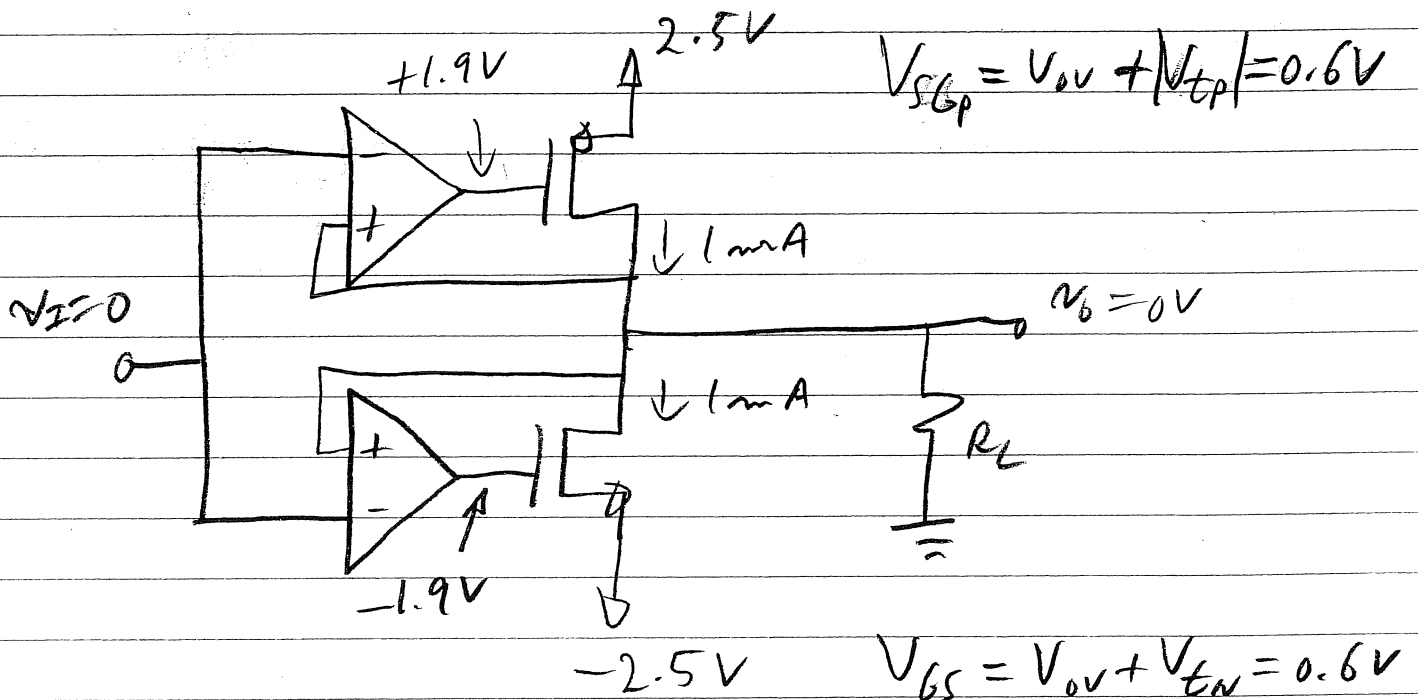 2.5V
+1.9V
V_SGp = V_ov + |V_tp| = 0.6V
-
+
↓ 1mA
v_I=0
v_o = 0V
↓ 1mA
+
R_L
-
-1.9V
-2.5V
V_GS = V_ov + V_tN = 0.6V